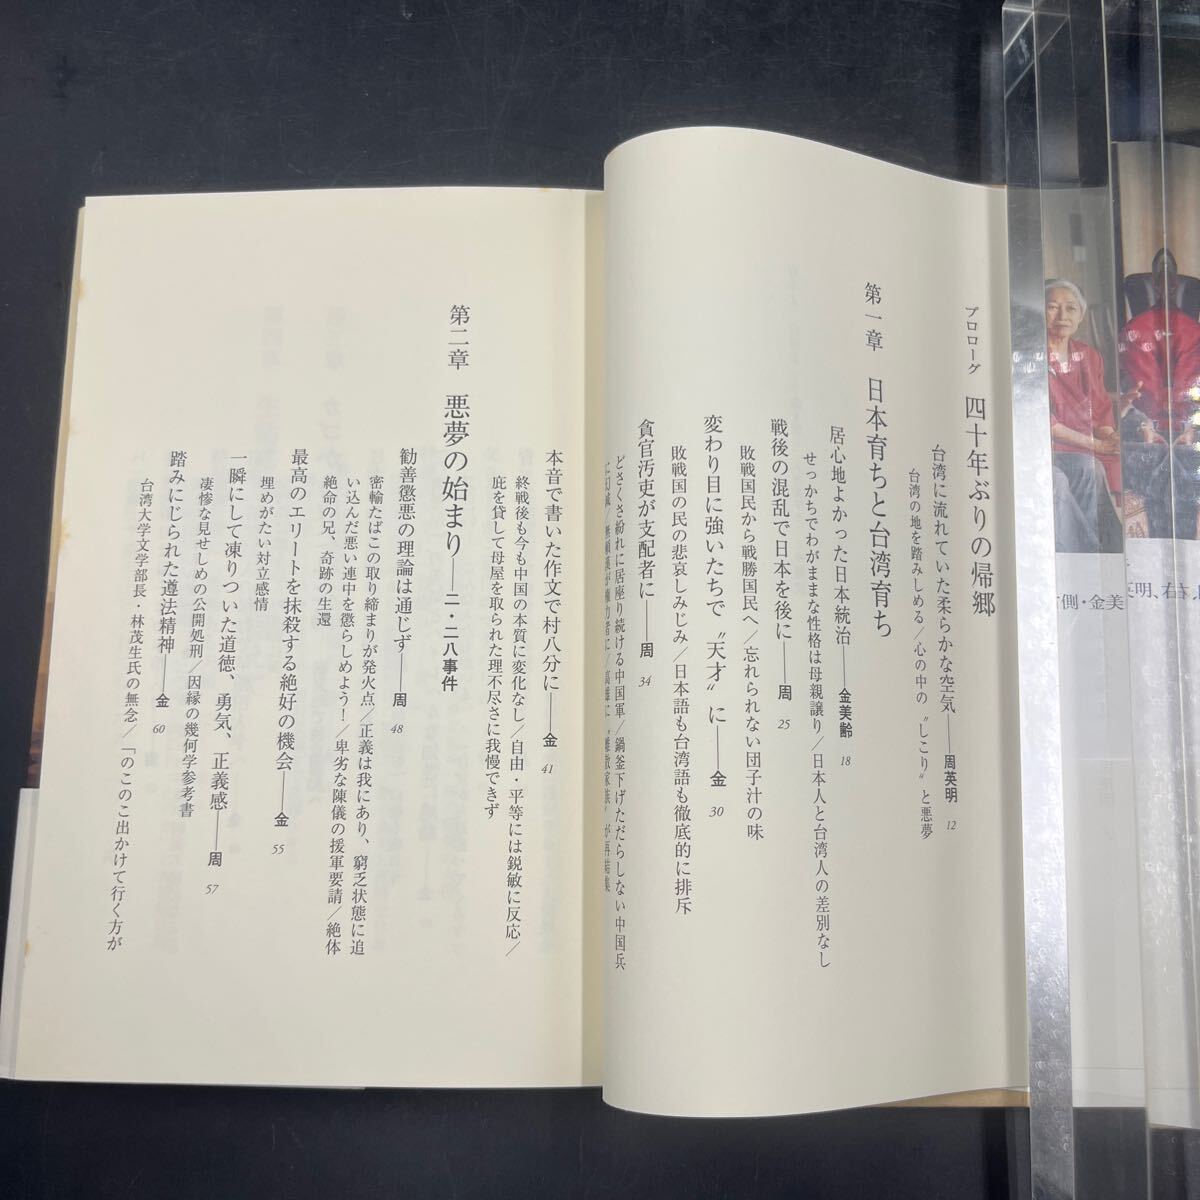 プロローグ 四十年ぶりの帰郷
台湾に流れていた柔らかな空気——周英明 12
台湾の地を踏みしめる／心の中の〝しこり〟と悪夢
第一章 日本育ちと台湾育ち
居心地よかった日本統治——金美齢 18
せっかちでわがままな性格は母親譲り／日本人と台湾人の差別なし
戦後の混乱で日本を後に——周 25
敗戦国民から戦勝国民へ／忘れられない団子汁の味
変わり目に強いたちで〝天才〟に——金 30
敗戦国の民の悲哀しみじみ／日本語も台湾語も徹底的に排斥
貪官汚吏が支配者に——周 34
どさくさ紛れに居座り続ける中国軍／鍋釜下げただらしない中国兵
本音で書いた作文で村八分に——金 41
終戦後も今も中国の本質に変化なし／自由・平等には鋭敏に反応／
庇を貸して母屋を取られた理不尽さに我慢できず
第二章 悪夢の始まり——二・二八事件
勧善懲悪の理論は通じず——周 48
密輸たばこの取り締まりが発火点／正義は我にあり、窮乏状態に追
い込んだ悪い連中を懲らしめよう！／卑劣な陳儀の援軍要請／絶体
絶命の兄、奇跡の生還
最高のエリートを抹殺する絶好の機会——金 55
埋めがたい対立感情
一瞬にして凍りついた道徳、勇気、正義感——周 57
凄惨な見せしめの公開処刑／因縁の幾何学参考書
踏みにじられた遵法精神——金 60
台湾大学文学部長・林茂生氏の無念／「のこのこ出かけて行く方が
側・金美
英明、右